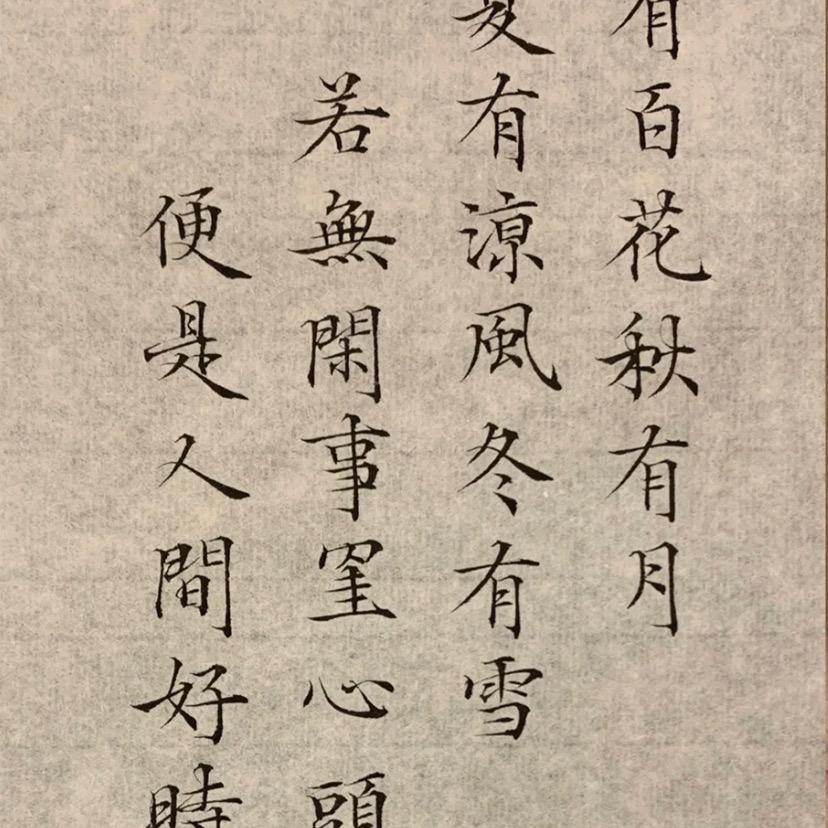 有百花秋有月
夏有涼風冬有雪
若無閑事罣心頭
便是人間好時